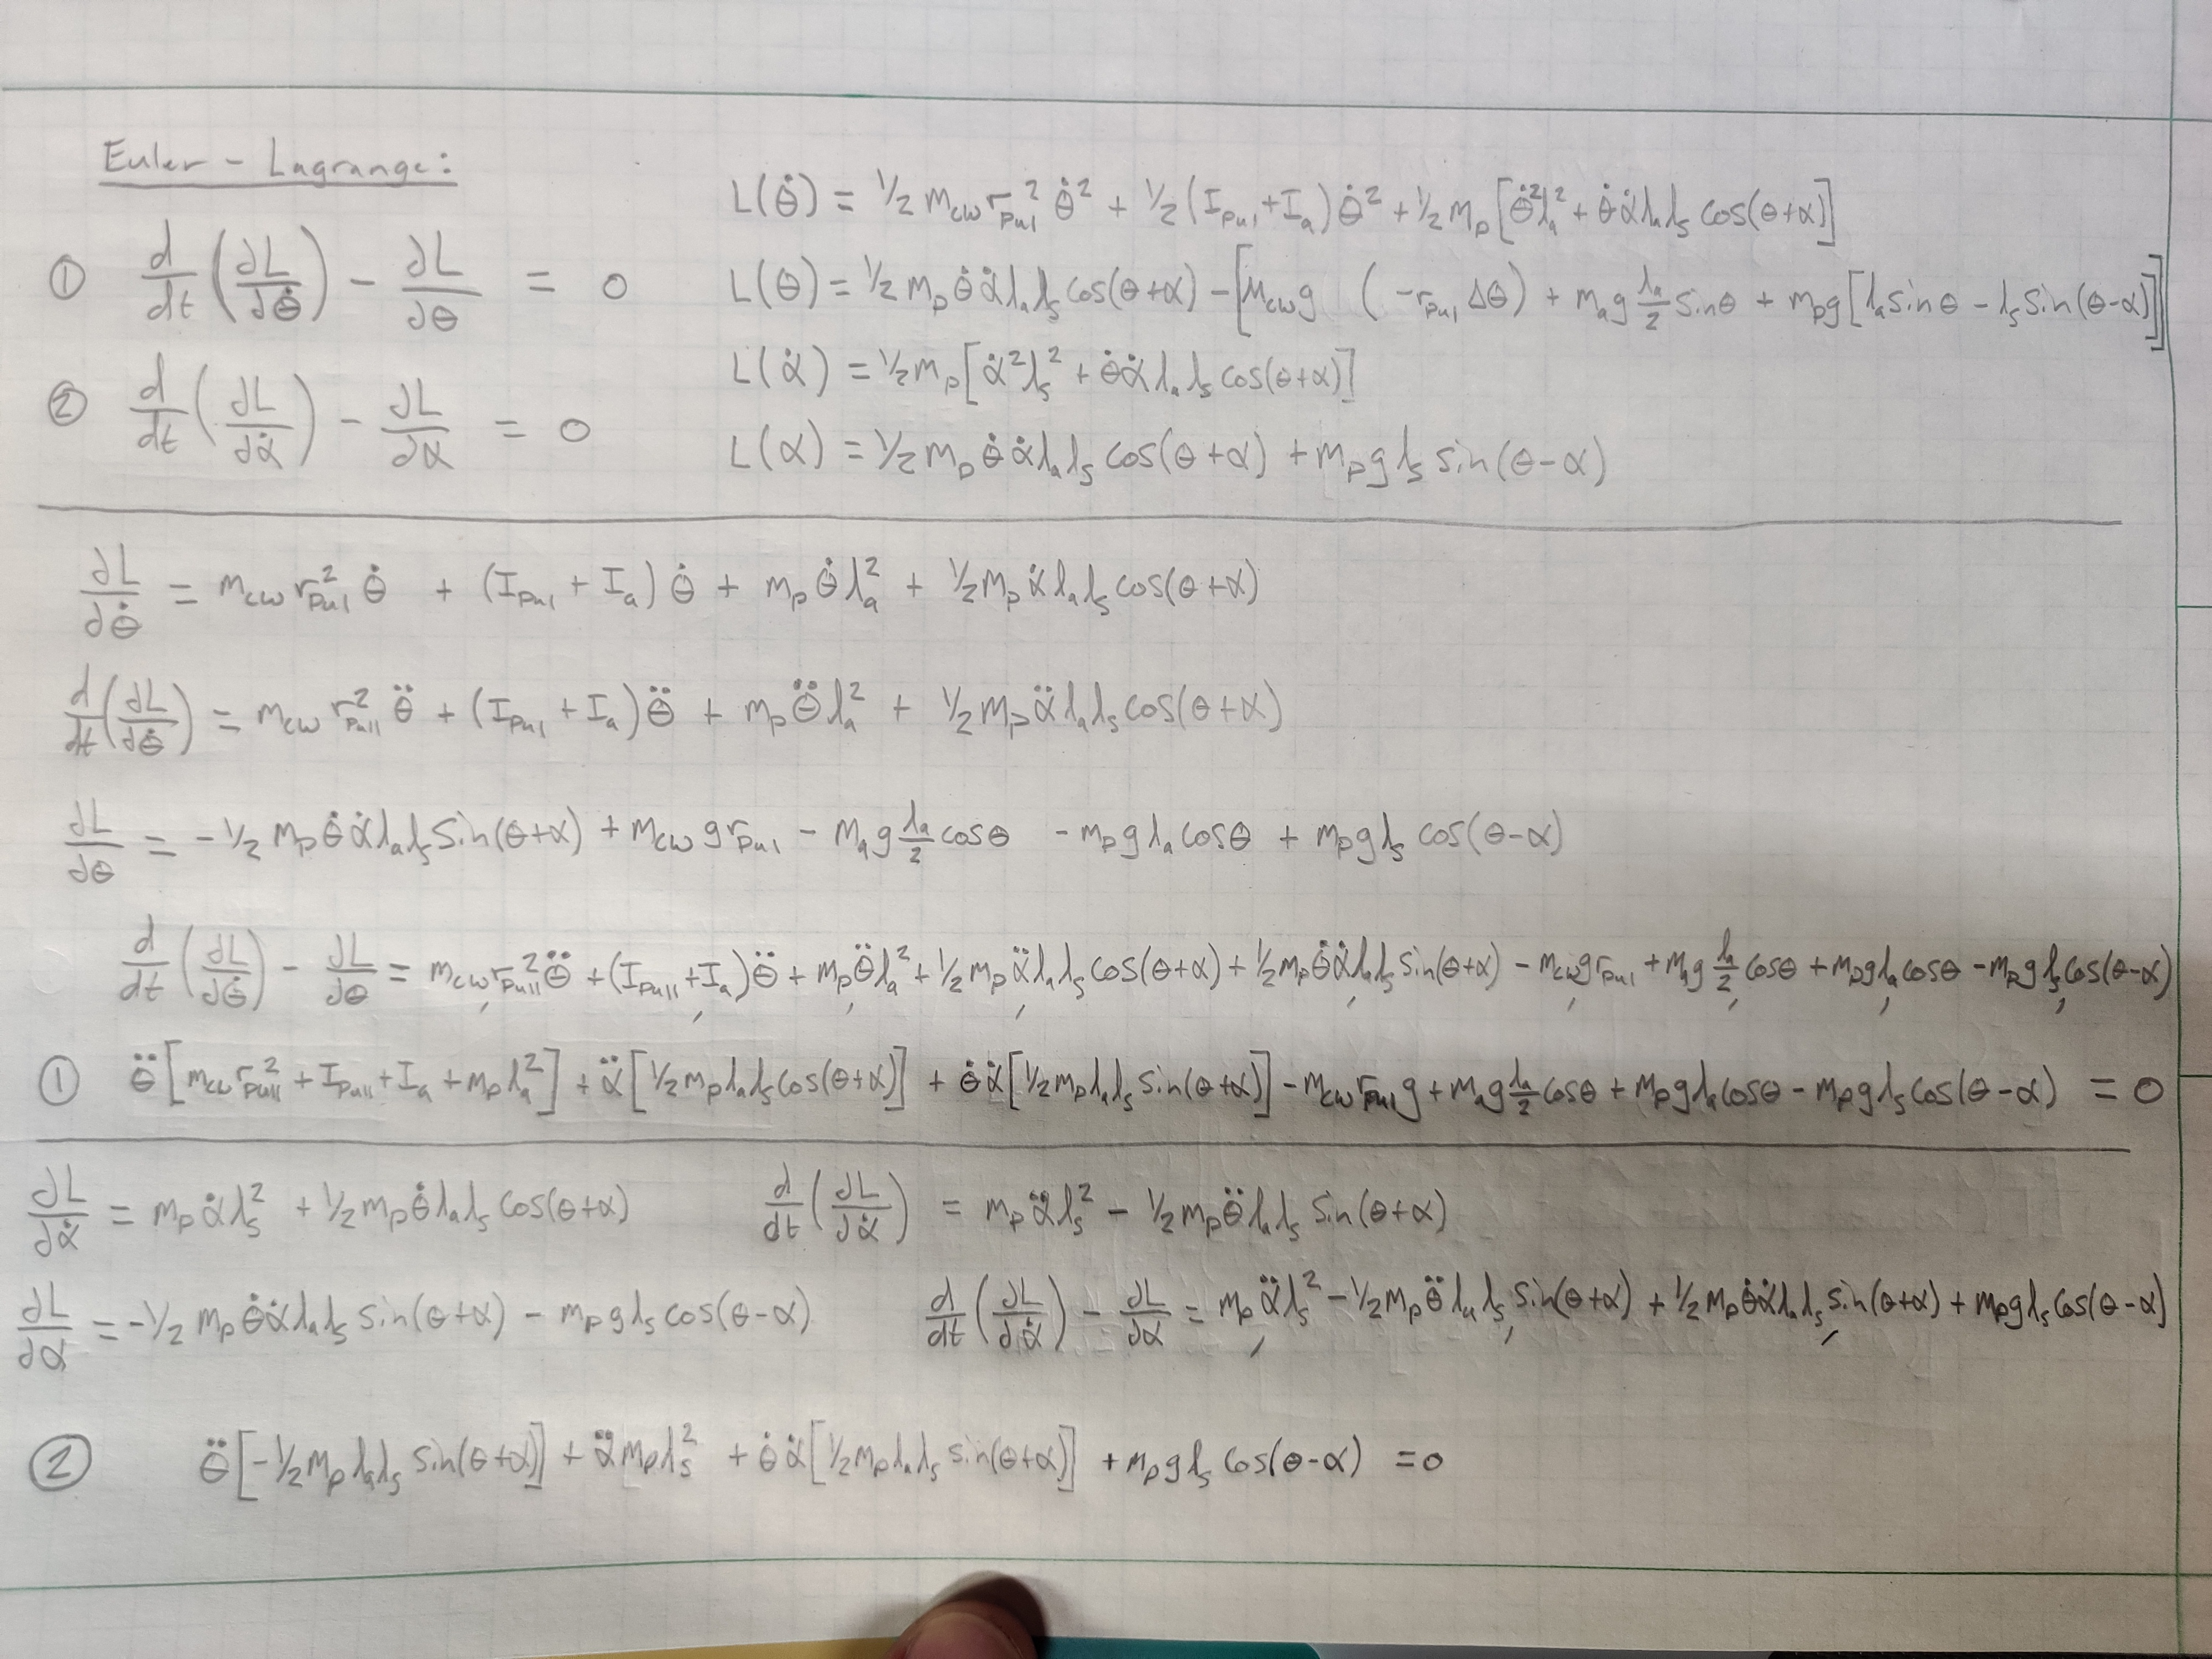 Euler - Lagrange:
① d/dt (∂L/∂θ̇) - ∂L/∂θ = 0
② d/dt (∂L/∂α̇) - ∂L/∂α = 0
L(θ̇) = 1/2 m_cw r_pul² θ̇² + 1/2 (I_pul + I_a) θ̇² + 1/2 m_p [θ̇² l_a² + θ̇ α̇ l_a l_s cos(θ+α)]
L(θ) = 1/2 m_p θ̇ α̇ l_a l_s cos(θ+α) - [m_cw g (-r_pul Δθ) + m_a g l_a/2 sinθ + m_p g [l_a sinθ - l_s sin(θ-α)]]
L(α̇) = 1/2 m_p [α̇² l_s² + θ̇ α̇ l_a l_s cos(θ+α)]
L(α) = 1/2 m_p θ̇ α̇ l_a l_s cos(θ+α) + m_p g l_s sin(θ-α)
∂L/∂θ̇ = m_cw r_pul² θ̇ + (I_pul + I_a) θ̇ + m_p θ̇ l_a² + 1/2 m_p α̇ l_a l_s cos(θ+α)
d/dt (∂L/∂θ̇) = m_cw r_pull² θ̈ + (I_pul + I_a) θ̈ + m_p θ̈ l_a² + 1/2 m_p α̈ l_a l_s cos(θ+α)
∂L/∂θ = -1/2 m_p θ̇ α̇ l_a l_s sin(θ+α) + m_cw g r_pul - m_a g l_a/2 cosθ - m_p g l_a cosθ + m_p g l_s cos(θ-α)
d/dt (∂L/∂θ̇) - ∂L/∂θ = m_cw r_pull² θ̈ + (I_pull + I_a) θ̈ + m_p θ̈ l_a² + 1/2 m_p α̈ l_a l_s cos(θ+α) + 1/2 m_p θ̇ α̇ l_a l_s sin(θ+α) - m_cw g r_pul + m_a g l_a/2 cosθ + m_p g l_a cosθ - m_p g l_s cos(θ-α)
① θ̈ [m_cw r_pull² + I_pull + I_a + m_p l_a²] + α̈ [1/2 m_p l_a l_s cos(θ+α)] + θ̇ α̇ [1/2 m_p l_a l_s sin(θ+α)] - m_cw r_pul g + m_a g l_a/2 cosθ + m_p g l_a cosθ - m_p g l_s cos(θ-α) = 0
∂L/∂α̇ = m_p α̇ l_s² + 1/2 m_p θ̇ l_a l_s cos(θ+α) d/dt (∂L/∂α̇) = m_p α̈ l_s² - 1/2 m_p θ̈ l_a l_s sin(θ+α)
∂L/∂α = -1/2 m_p θ̇ α̇ l_a l_s sin(θ+α) - m_p g l_s cos(θ-α) d/dt (∂L/∂α̇) - ∂L/∂α = m_p α̈ l_s² - 1/2 m_p θ̈ l_a l_s sin(θ+α) + 1/2 m_p θ̇ α̇ l_a l_s sin(θ+α) + m_p g l_s cos(θ-α)
② θ̈ [-1/2 m_p l_a l_s sin(θ+α)] + α̈ m_p l_s² + θ̇ α̇ [1/2 m_p l_a l_s sin(θ+α)] + m_p g l_s cos(θ-α) = 0